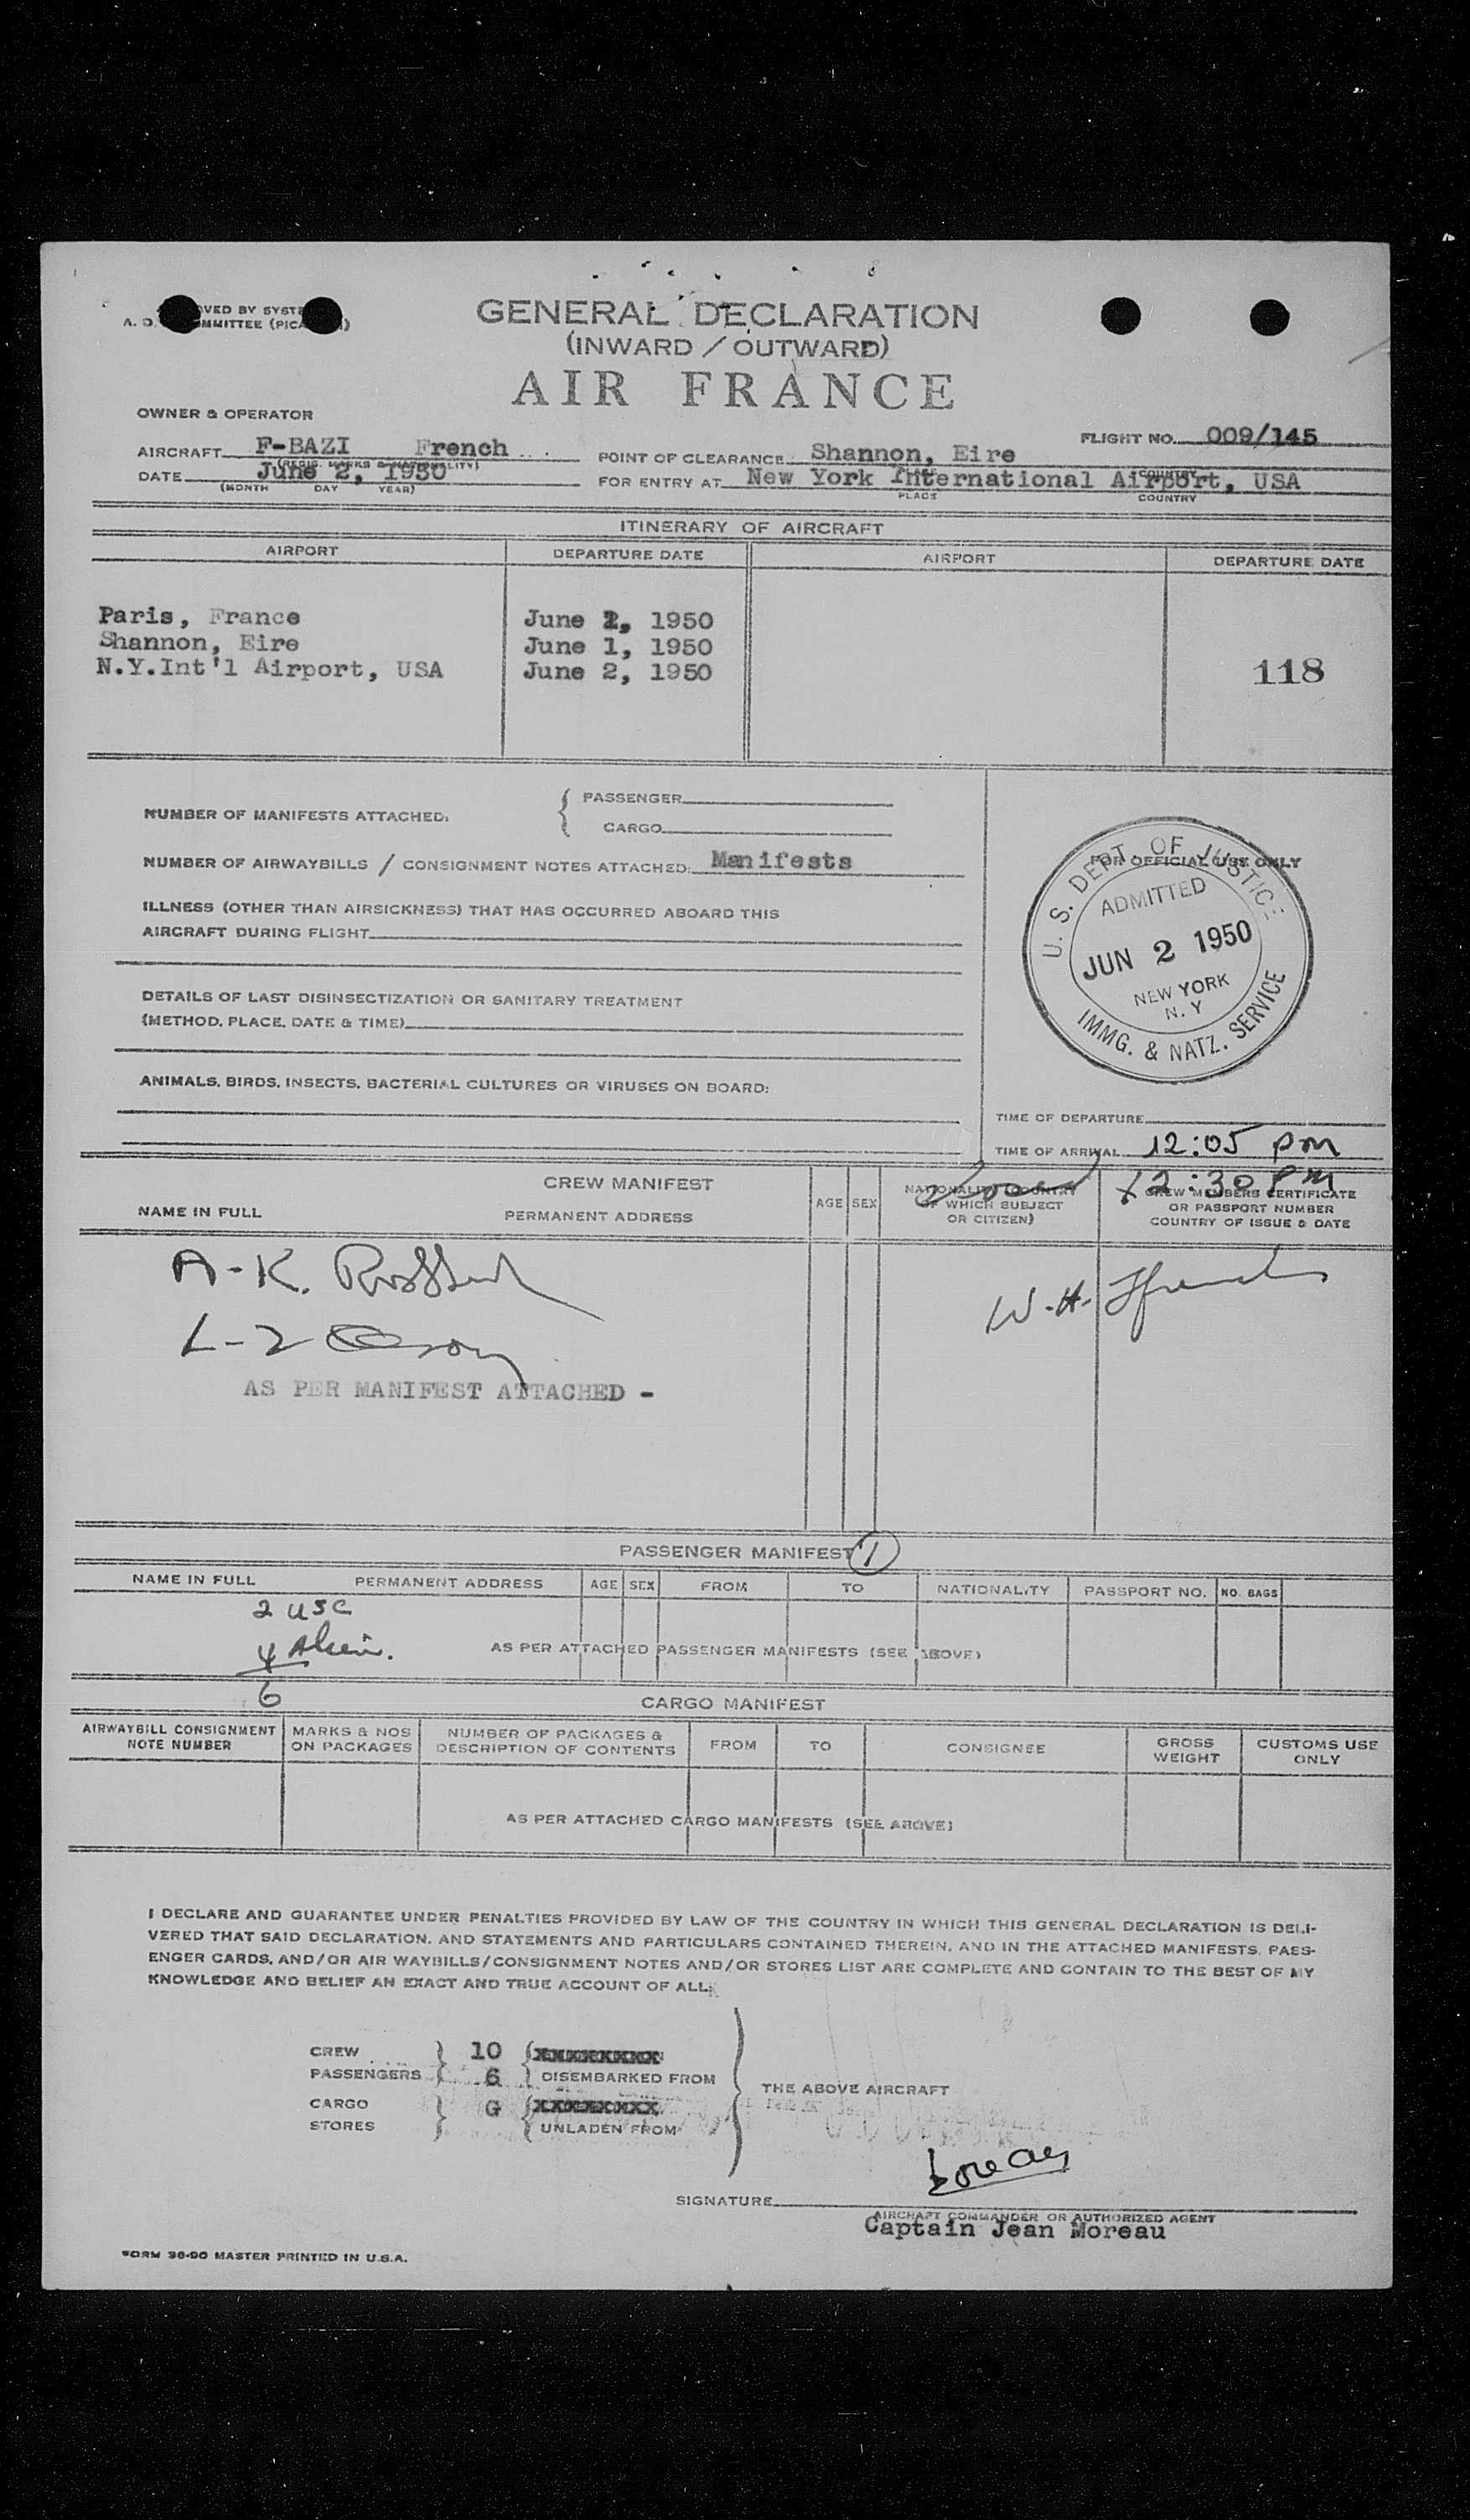 GENERAL DECLARATION
(INWARD / OUTWARD)
AIR FRANCE
OWNER & OPERATOR
FLIGHT NO. 009/145
AIRCRAFT F-BAZI French
(REGIS. MARKS & NATIONALITY)
POINT OF CLEARANCE Shannon, Eire
PLACE COUNTRY
DATE June 2, 1950
(MONTH DAY YEAR)
FOR ENTRY AT New York International Airport, USA
PLACE COUNTRY
ITINERARY OF AIRCRAFT
AIRPORT DEPARTURE DATE AIRPORT DEPARTURE DATE
Paris, France June 1, 1950
Shannon, Eire June 1, 1950
N.Y.Int'l Airport, USA June 2, 1950
118
NUMBER OF MANIFESTS ATTACHED: { PASSENGER
CARGO
NUMBER OF AIRWAYBILLS / CONSIGNMENT NOTES ATTACHED: Manifests
ILLNESS (OTHER THAN AIRSICKNESS) THAT HAS OCCURRED ABOARD THIS
AIRCRAFT DURING FLIGHT
DETAILS OF LAST DISINSECTIZATION OR SANITARY TREATMENT
(METHOD, PLACE, DATE & TIME)
ANIMALS, BIRDS, INSECTS, BACTERIAL CULTURES OR VIRUSES ON BOARD:
FOR OFFICIAL USE ONLY
U. S. DEPT. OF JUSTICE
ADMITTED
JUN 2 1950
NEW YORK
N. Y
IMMG. & NATZ. SERVICE
TIME OF DEPARTURE
TIME OF ARRIVAL 12:05 PM
12:30 PM
CREW MANIFEST
NAME IN FULL PERMANENT ADDRESS AGE SEX
NATIONALITY (COUNTRY
OF WHICH SUBJECT
OR CITIZEN)
CREW MEMBERS CERTIFICATE
OR PASSPORT NUMBER
COUNTRY OF ISSUE & DATE
A-K.
W.H.
AS PER MANIFEST ATTACHED -
PASSENGER MANIFEST 1
NAME IN FULL PERMANENT ADDRESS AGE SEX FROM TO NATIONALITY PASSPORT NO. NO. BAGS
2 USC
4 Alien.
6
AS PER ATTACHED PASSENGER MANIFESTS (SEE ABOVE)
CARGO MANIFEST
AIRWAYBILL CONSIGNMENT
NOTE NUMBER
MARKS & NOS
ON PACKAGES
NUMBER OF PACKAGES &
DESCRIPTION OF CONTENTS
FROM TO CONSIGNEE
GROSS
WEIGHT
CUSTOMS USE
ONLY
AS PER ATTACHED CARGO MANIFESTS (SEE ABOVE)
I DECLARE AND GUARANTEE UNDER PENALTIES PROVIDED BY LAW OF THE COUNTRY IN WHICH THIS GENERAL DECLARATION IS DELI-
VERED THAT SAID DECLARATION, AND STATEMENTS AND PARTICULARS CONTAINED THEREIN, AND IN THE ATTACHED MANIFESTS, PAES-
ENGER CARDS, AND/OR AIR WAYBILLS/CONSIGNMENT NOTES AND/OR STORES LIST ARE COMPLETE AND CONTAIN TO THE BEST OF MY
KNOWLEDGE AND BELIEF AN EXACT AND TRUE ACCOUNT OF ALL:
CREW 10 XXXXXXXXX
PASSENGERS 6 DISEMBARKED FROM
THE ABOVE AIRCRAFT
CARGO G XXXXXXXXX
STORES UNLADEN FROM
SIGNATURE
AIRCRAFT COMMANDER OR AUTHORIZED AGENT
Captain Jean Moreau
FORM 36-90 MASTER PRINTED IN U.S.A.